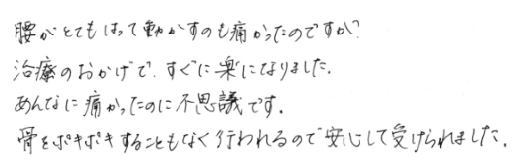 腰がとてもはって動かすのも痛かったのですが?
治療のおかげで、すぐに楽になりました。
あんなに痛かったのに不思議です。
骨をポキポキすることもなく行われるので安心して受けられました。